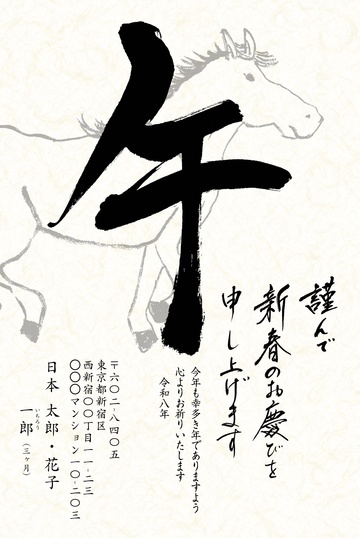 午
謹んで
新春のお慶びを
申し上げます
今年も幸多き年でありますよう
心よりお祈りいたします
令和八年
〒六〇二-八四〇五
東京都新宿区
西新宿〇〇丁目一一-二三
〇〇〇マンション一〇-二〇三
日本 太郎・花子
一郎(三ヶ月)
いちろう